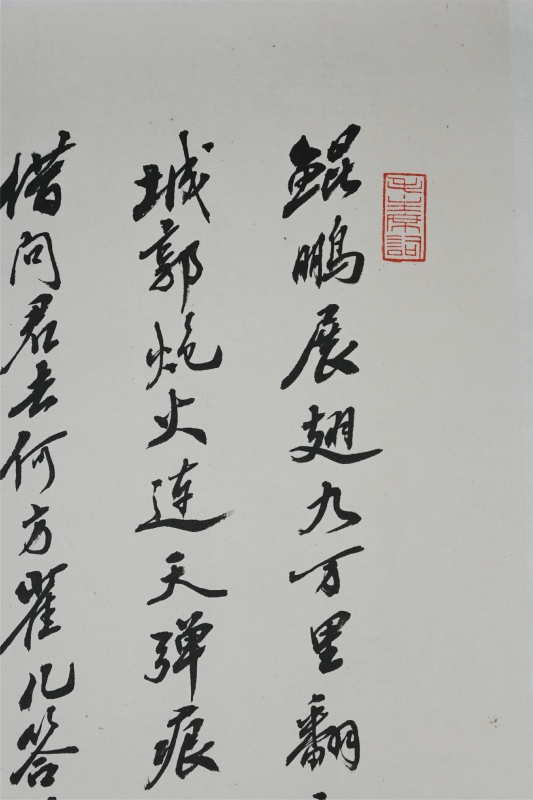 毛主席詞
鯤鵬展翅九万里翻
城郭炮火連天弹痕
借问君去何方雀儿答